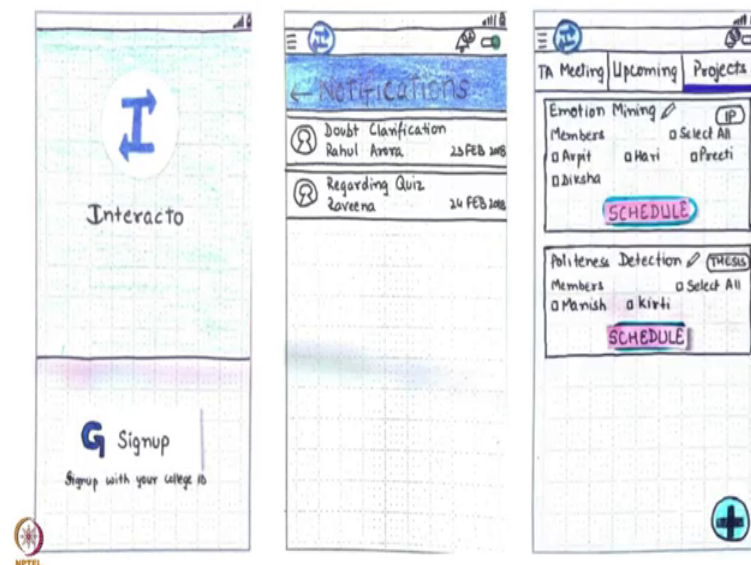 Interacto
G Signup
Signup with your college ID
← Notifications
Doubt Clarification
Rahul Arora 23 FEB 2018
Regarding Quiz
Raveena 24 FEB 2018
TA Meeting Upcoming Projects
Emotion Mining IP
Members Select All
Arpit Hari Preeti
Diksha
SCHEDULE
Politeness Detection THESIS
Members Select All
Manish Kirti
SCHEDULE
NPTEL